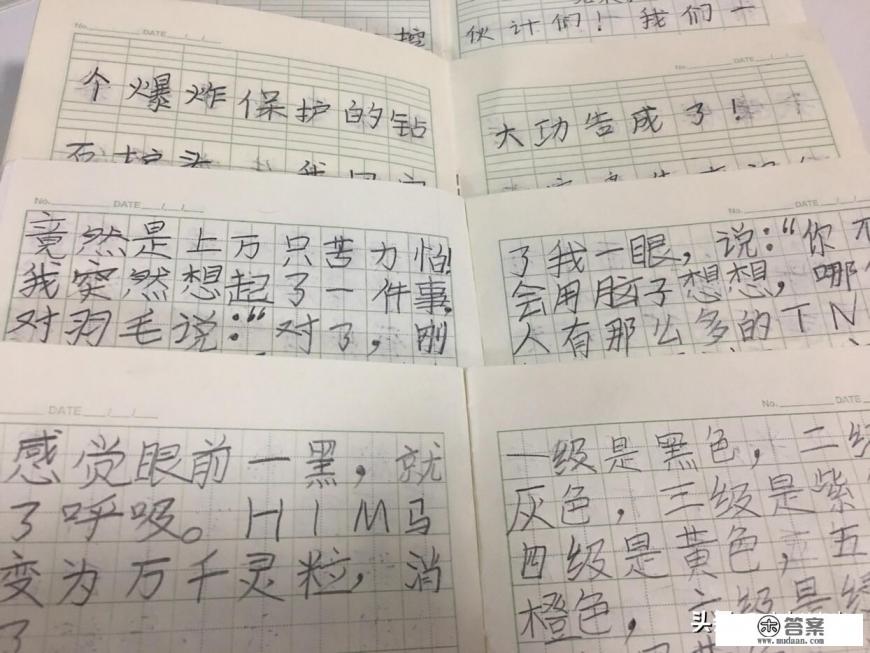 伙计们！我们一
No. DATE / /
个爆炸保护的钻
No. DATE / /
大功告成了！
No. DATE / /
竟然是上万只苦力怕！
我突然想起了一件事，
对羽毛说：“对了，刚
No. DATE / /
了我一眼，说：“你不
会用脑子想想，哪
人有那么多的TN
DATE / /
感觉眼前一黑，就
了呼吸。HIM马
变为万千灵粒，消
了
No. DATE
一级是黑色，二级
灰色，三级是紫
四级是黄色，五
橙色，六级是绿
答案
www.mudaan.com